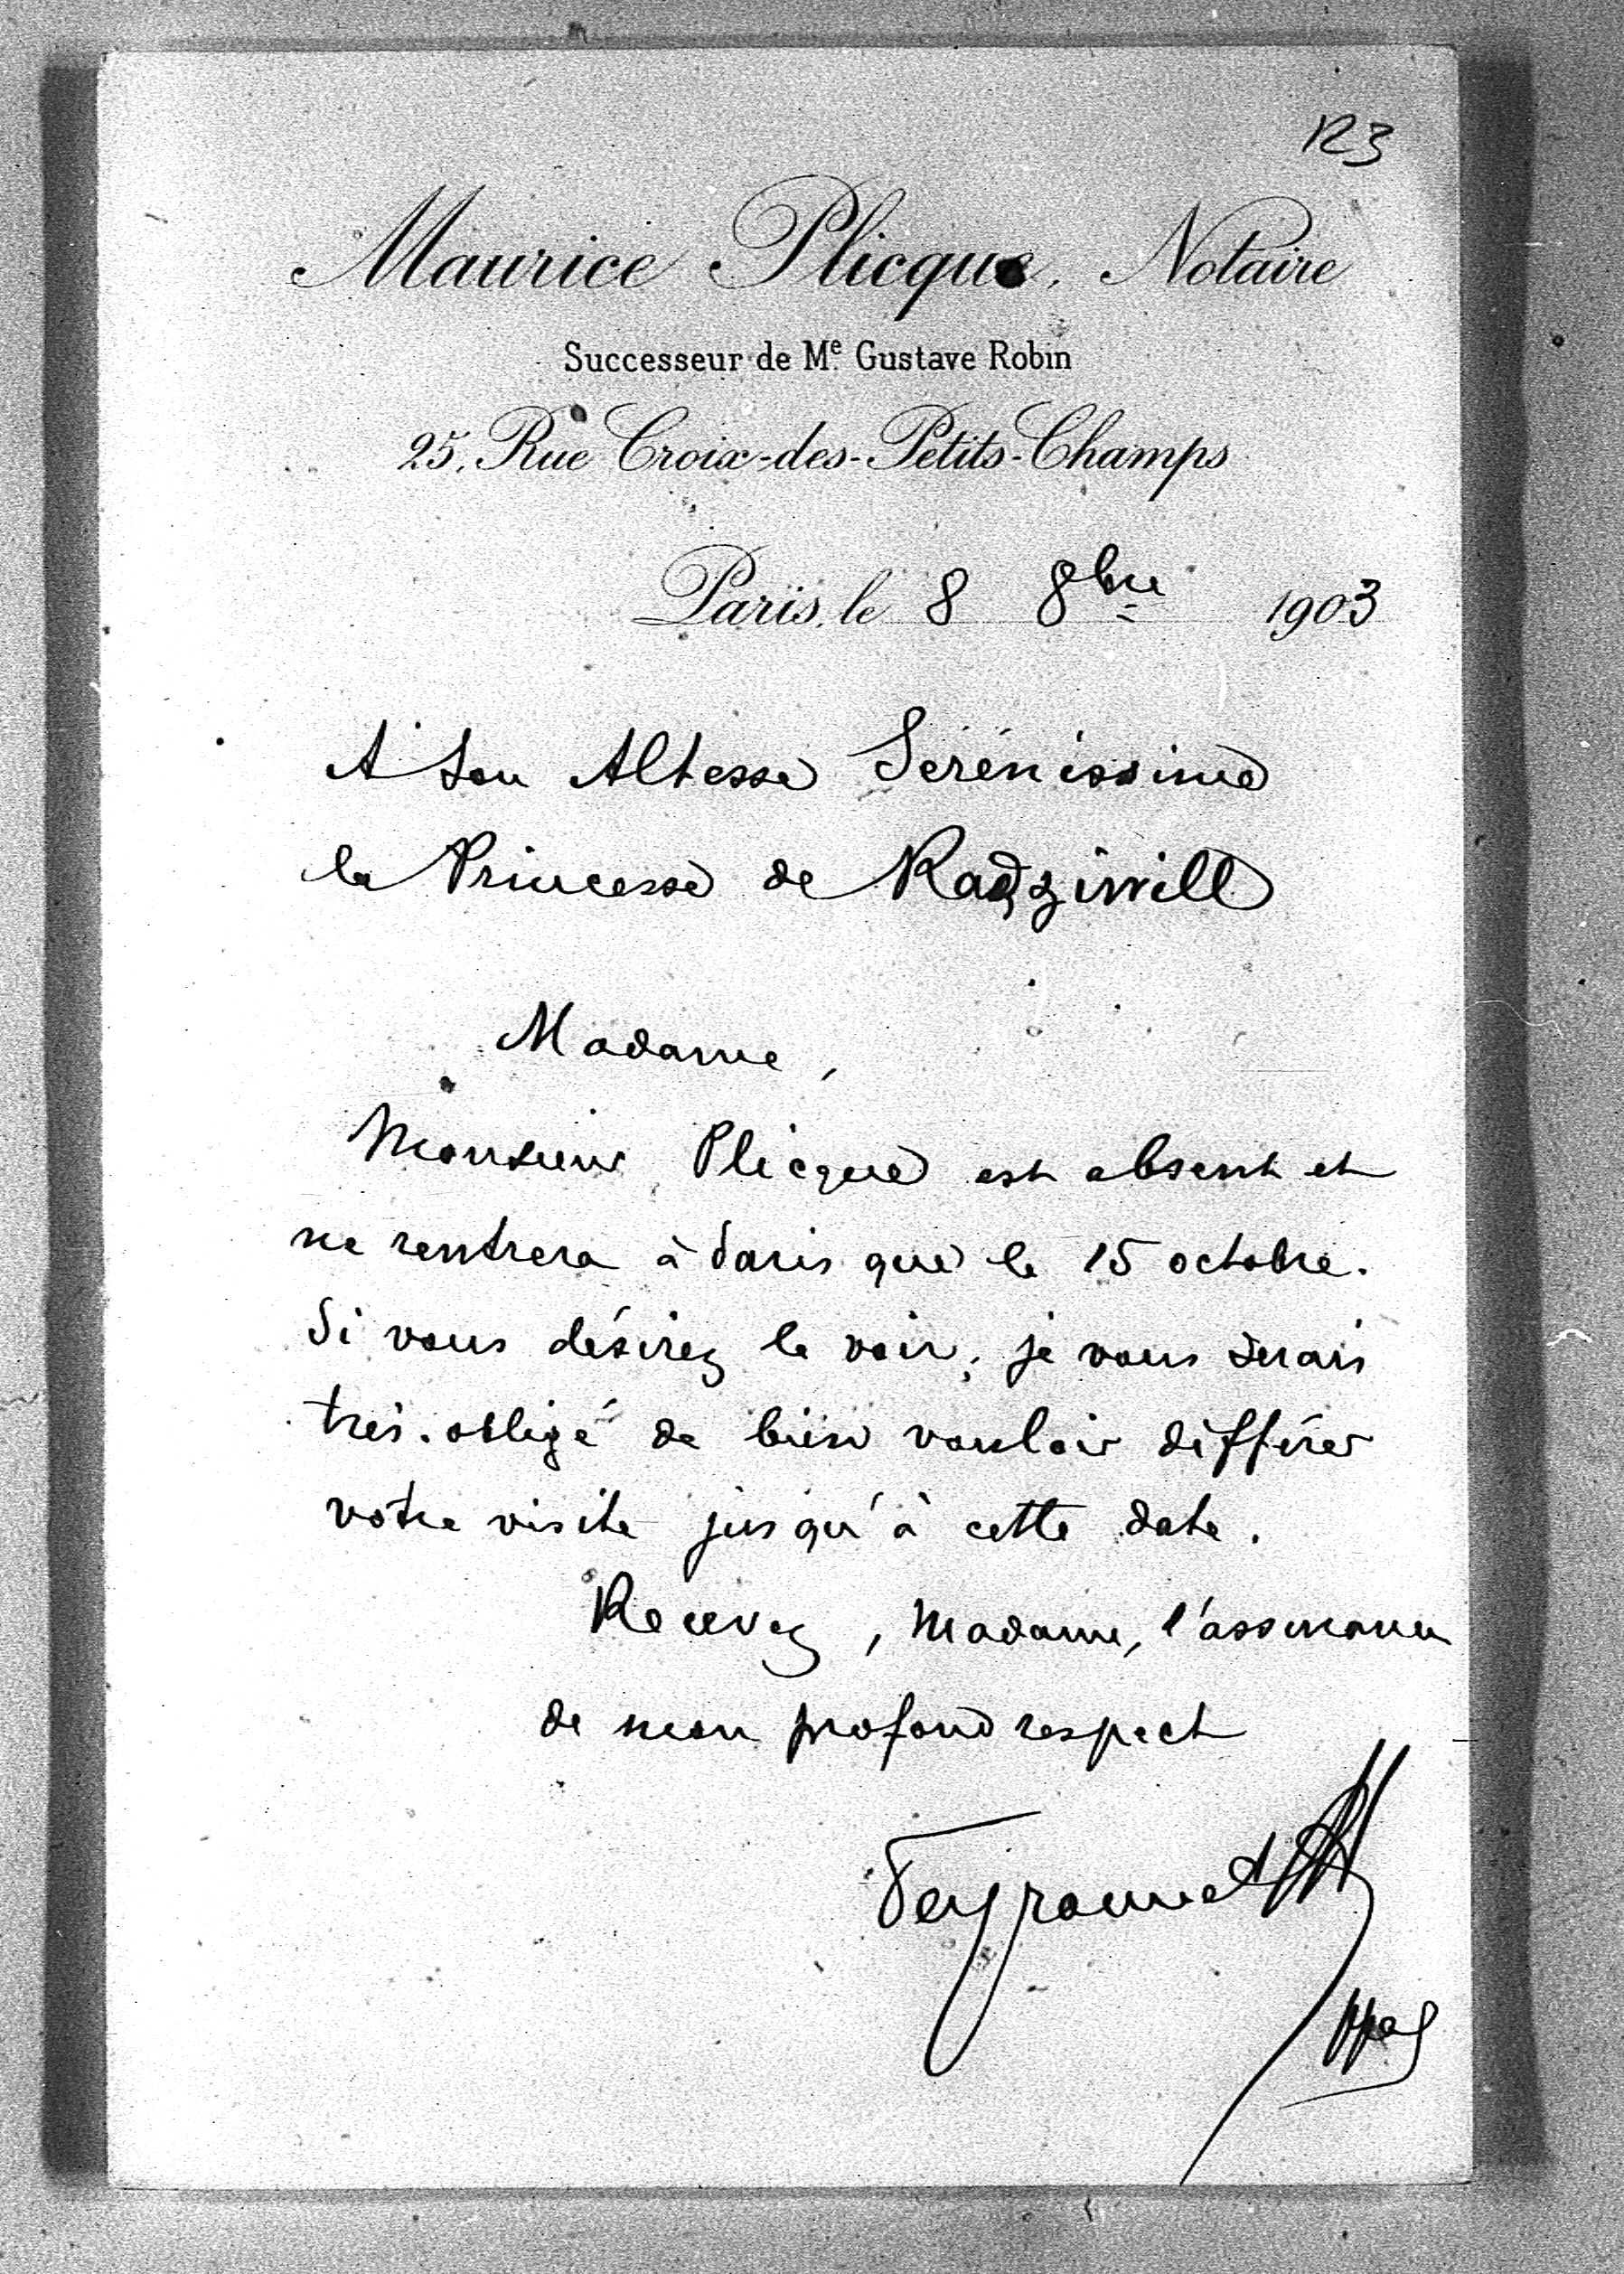 123
Maurice Plicque, Notaire
Successeur de Me Gustave Robin
25, Rue Croix-des-Petits-Champs
Paris, le 8 8bre 1903
A Son Altesse Sérénissime
la Princesse de Radziwill
Madame,
Monsieur Plicque est absent et
ne rentrera à Paris que le 15 octobre.
Si vous désirez le voir, je vous serais
très-obligé de bien vouloir différer
votre visite jusqu'à cette date.
Recevez, Madame, l'assurance
de mon profond respect